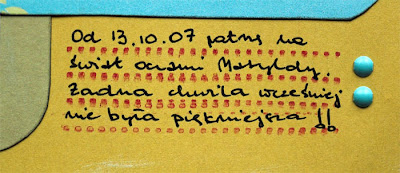 Od 13.10.07 patrzę na
świat oczami Matyldy.
Żadna chwila wcześniej
nie była piękniejsza !!